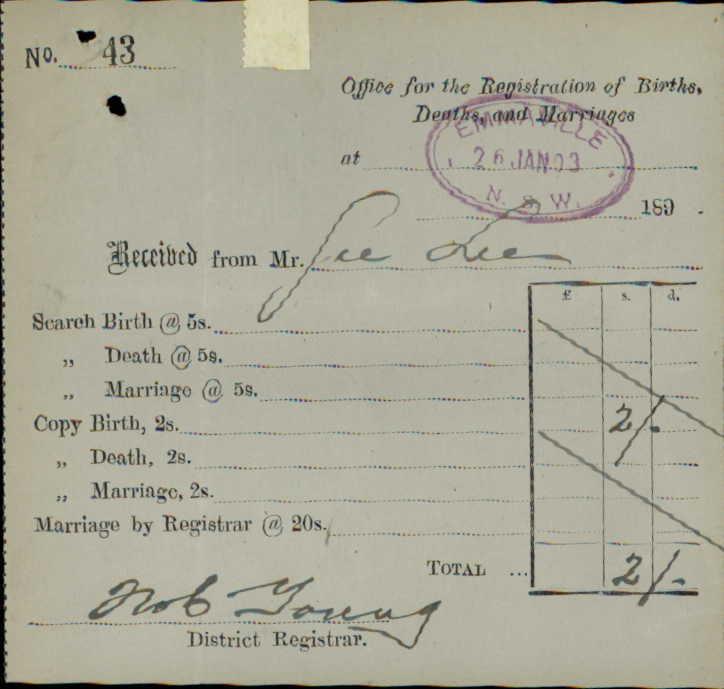 No. 43
Office for the Registration of Births,
Deaths, and Marriages
EMMAVILLE
at
26 JAN 03
N. S. W.
189 .
Received from Mr. Lee
£ s. d.
Search Birth @ 5s.
„ Death @ 5s.
„ Marriage @ 5s.
Copy Birth, 2s. 2/-
„ Death, 2s.
„ Marriage, 2s.
Marriage by Registrar @ 20s.
TOTAL ... 2/-
Rob Young
District Registrar.